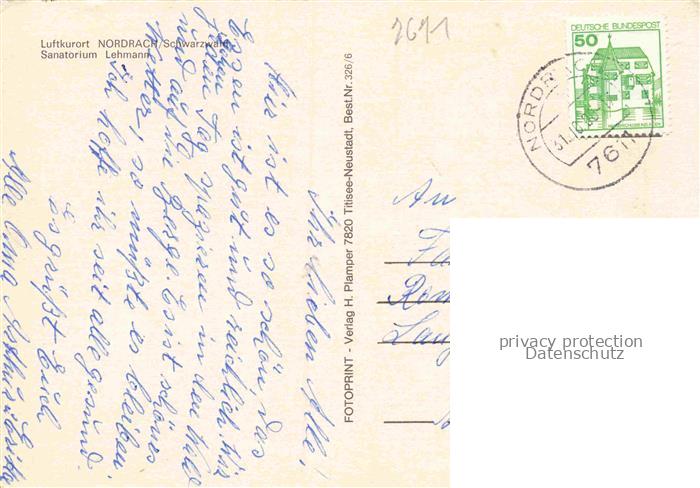 Luftkurort NORDRACH/Schwarzwald
Sanatorium Lehmann
2671
DEUTSCHE BUNDESPOST
50
NORDRACH
31.10.80
761
Ihr lieben Alle!
Hir ist es so schön, das
Essen ist gut und reichlich. Wir
gehen jeden Tag spazieren in den Wald
und auf die Berge. Es ist schönes
Wetter, so müßte es bleiben.
Ich hoffe ihr seit alle gesund.
Es grüßt Euch
Alle Oma
FOTOPRINT - Verlag H. Plamper 7820 Titisee-Neustadt, Best.Nr. 326/6
An
Fa
Rom
Lang
privacy protection
Datenschutz